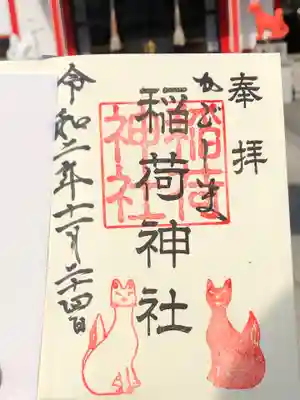 奉拝
かぶしま
稲荷神社
稲荷
神社
令和二年十一月二十四日